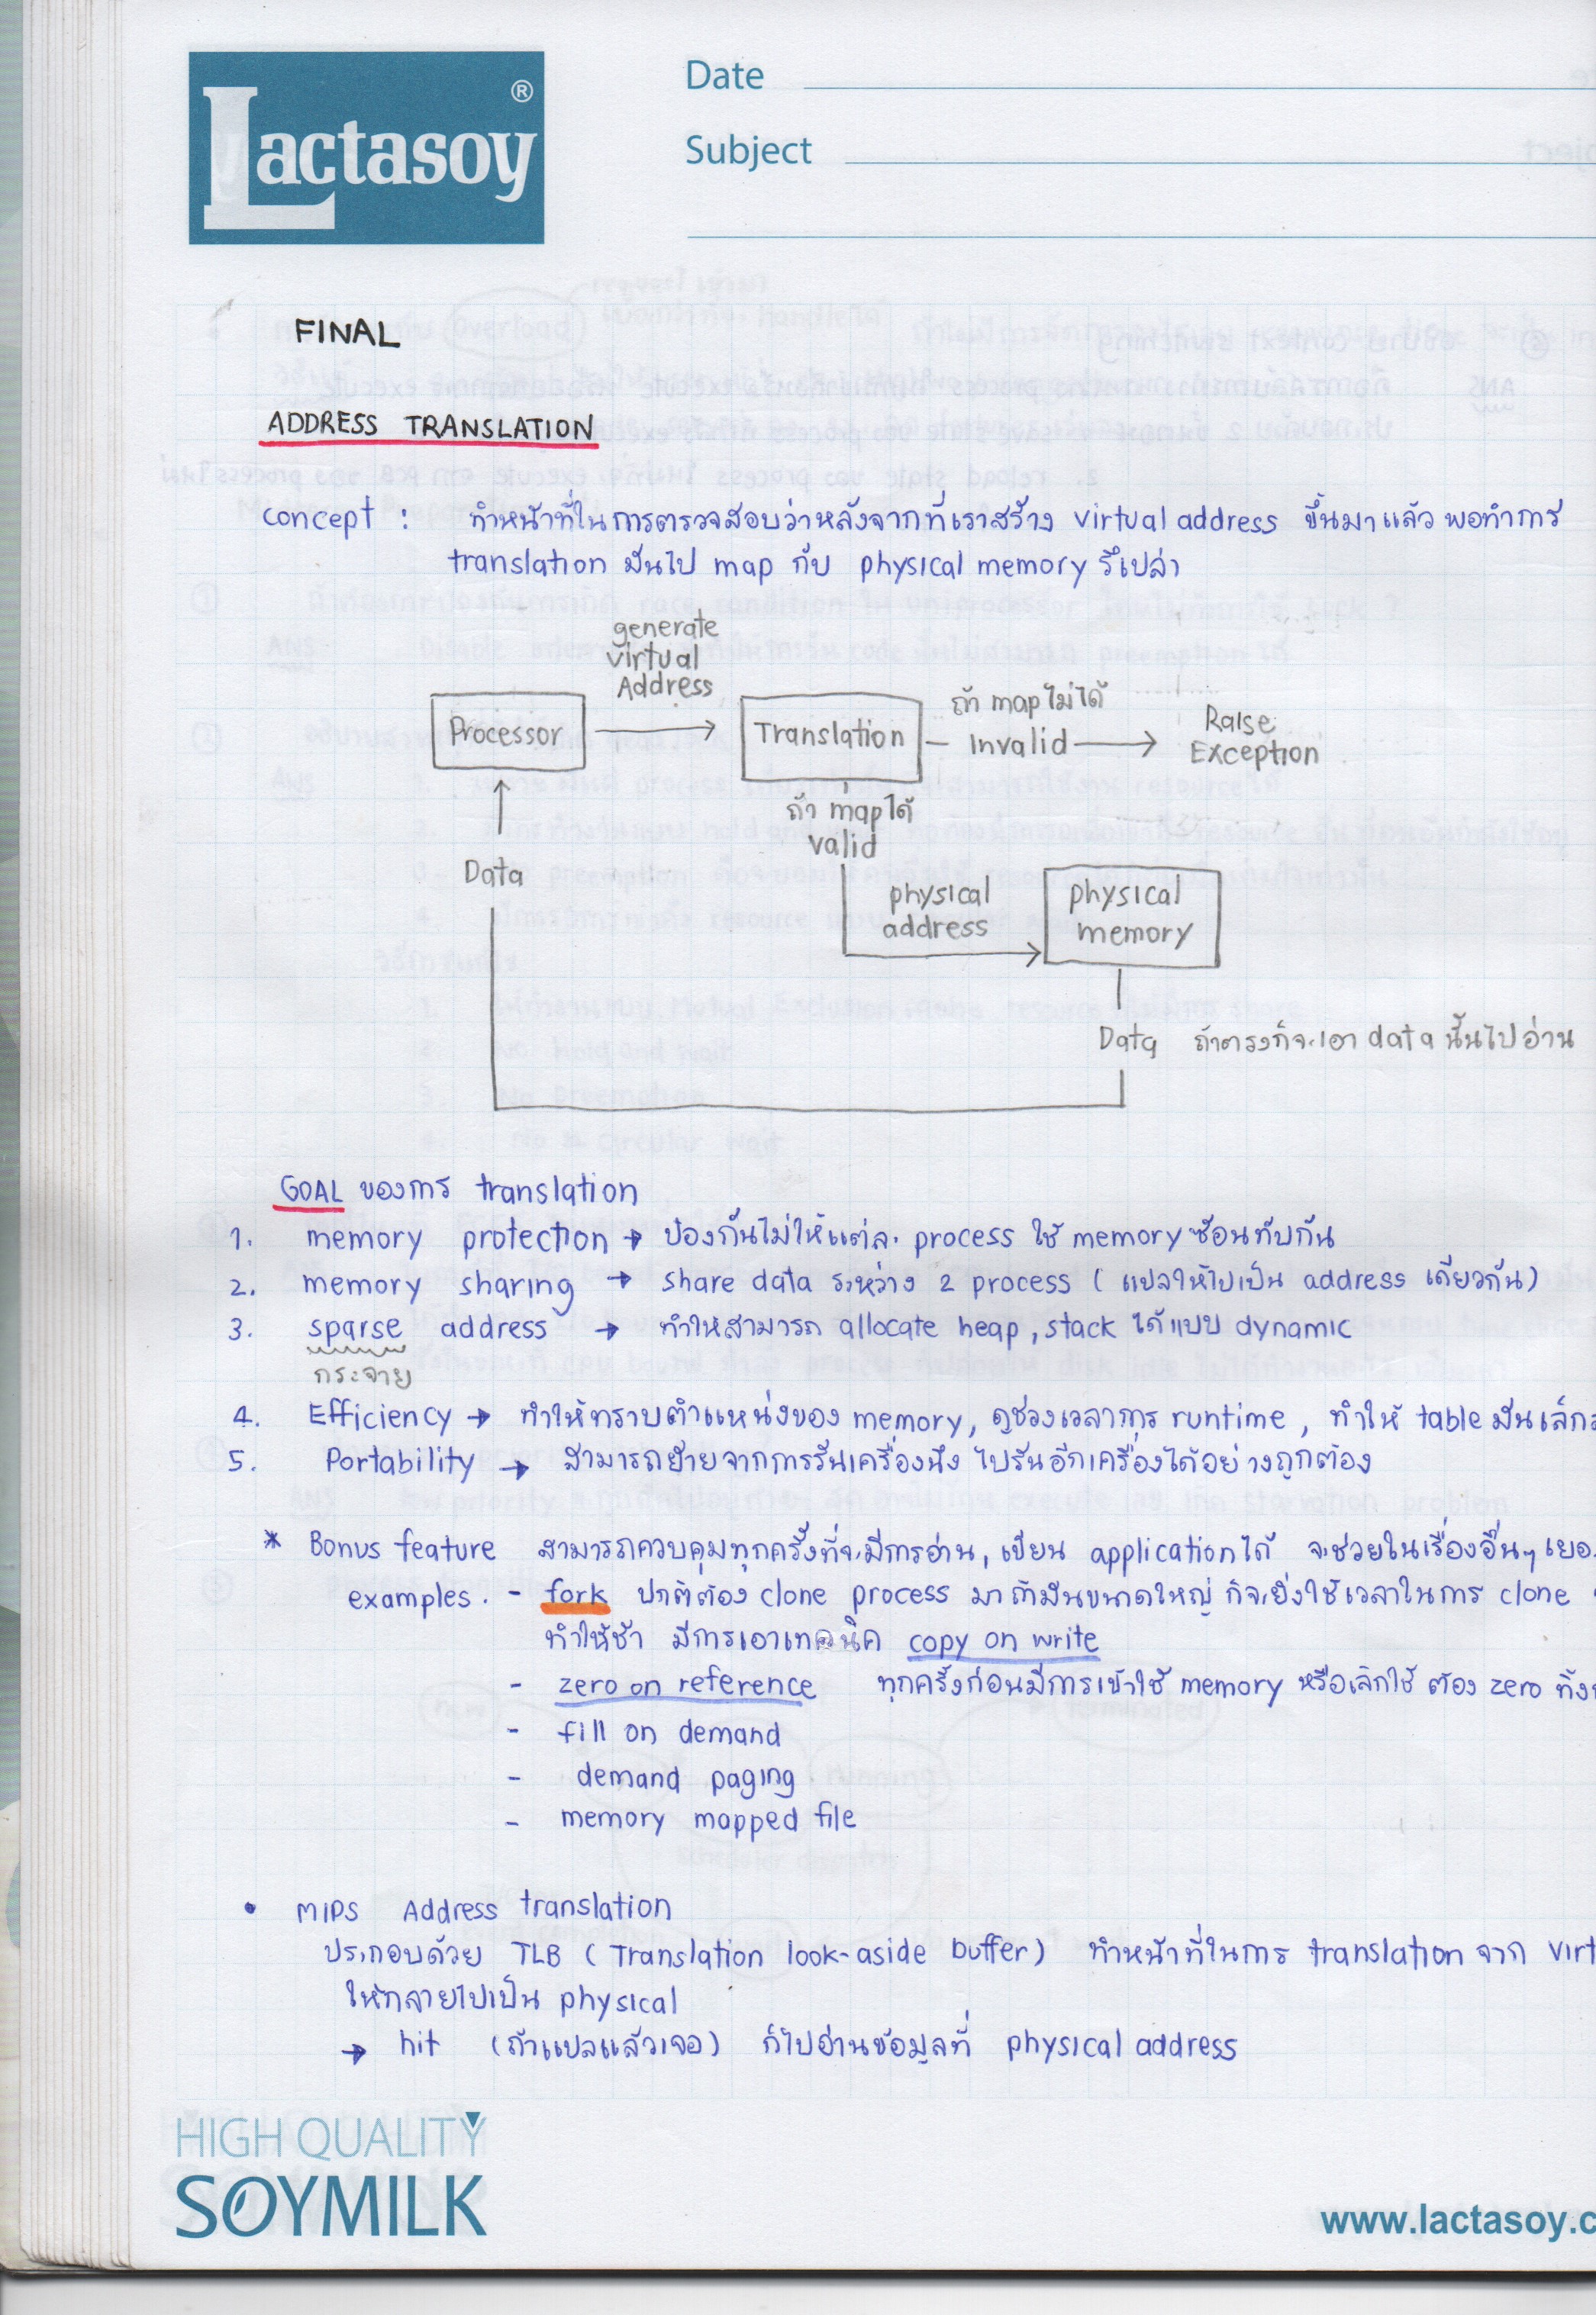 Lactasoy ®
Date
Subject
FINAL
ADDRESS TRANSLATION
concept : ทำหน้าที่ในการตรวจสอบว่าหลังจากที่เราสร้าง virtual address ขึ้นมาแล้ว พอทำการ
translation มันไป map กับ physical memory รึเปล่า
generate
virtual
Address
Processor
Translation
ถ้า map ไม่ได้
Invalid
Raise
Exception
ถ้า map ได้
valid
Data
physical
address
physical
memory
Data ถ้าตรงก็จะเอา data นั้นไปอ่าน
GOAL ของการ translation
1. memory protection → ป้องกันไม่ให้แต่ละ process ใช้ memory ซ้อนทับกัน
2. memory sharing → share data ระหว่าง 2 process ( แปลให้ไปเป็น address เดียวกัน)
3. sparse address → ทำให้สามารถ allocate heap, stack ได้แบบ dynamic
กระจาย
4. Efficiency → ทำให้ทราบตำแหน่งของ memory, ดูช่วงเวลาการ runtime, ทำให้ table มันเล็ก
5. Portability → สามารถย้ายจากการรันเครื่องนึง ไปรันอีกเครื่องได้อย่างถูกต้อง
* Bonus feature สามารถควบคุมทุกครั้งที่จะมีการอ่าน, เขียน application ได้ จะช่วยในเรื่องอื่นๆ
examples. - fork ปกติต้อง clone process มา ถ้ามันขนาดใหญ่ ก็จะยิ่งใช้เวลาในการ clone
ทำให้ช้า มีการเอาเทคนิค copy on write
- zero on reference ทุกครั้งก่อนมีการเข้าใช้ memory หรือเลิกใช้ ต้อง zero
- fill on demand
- demand paging
- memory mapped file
• MIPS Address translation
ประกอบด้วย TLB ( Translation look-aside buffer) ทำหน้าที่ในการ translation จาก virt
ให้กลายไปเป็น physical
→ hit (ถ้าแปลแล้วเจอ) ก็ไปอ่านข้อมูลที่ physical address
HIGH QUALITY
SOYMILK
www.lactasoy.c